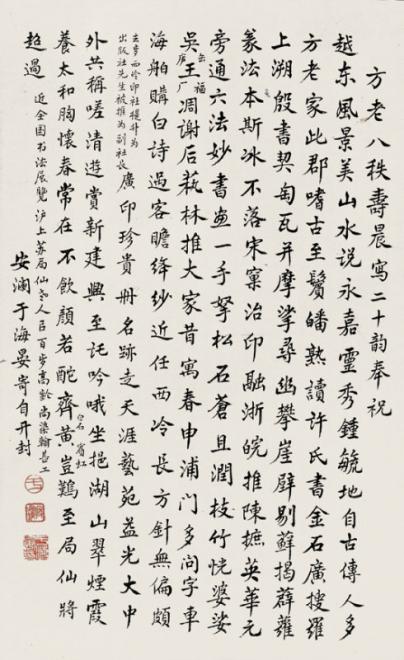 方老八秩壽晨寫二十韵奉祝
越东風景美山水说永嘉靈秀鍾毓地自古傳人多
方老家此郡嗜古至鬢皤熟讀许氏書金石廣搜羅
上溯殷書契甸瓦并摩挲尋幽攀崖壁剔蘚揭薜蘿
篆法本斯冰不落宋窠治印融浙皖推陳摭英華元
旁通六法妙書画一手拏松石蒼且潤枝竹恍婆娑
吳王凋謝后菰林推大家昔寓春申浦門多问字車
缶廬
福厂
海舶購白詩過客瞻绛纱近任西冷長方針無偏颇
去岁西冷印社提升为
出版社先生被推为副社长
廣印珍贵册名跡走天涯藝苑益光大中
外共稱嗟清遊賞新建興至託吟哦坐挹湖山翠煙霞
養太和胸懷春常在不飲顔若酡齊黄豈鷄至局仙將
白石
賓虹
超過
近全国书法展覽沪上苏局仙老人已百岁高齡尚染翰甚工
安瀾于海晏寄自开封